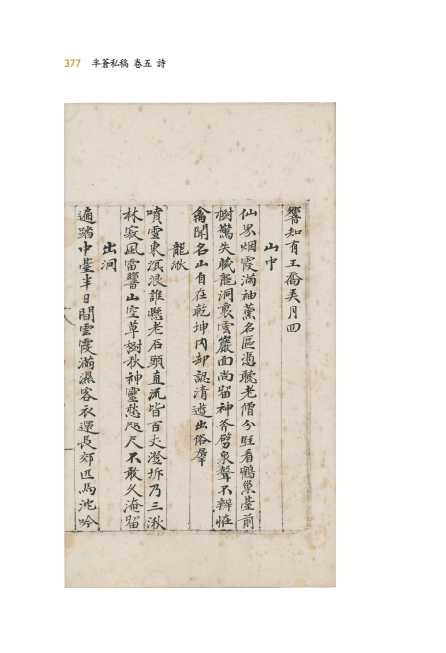 377 半蒼私稿 卷五 詩
響知有王喬弄月回
山中
仙界烟霞滿袖薰名區遊聽老僧分旺看鶴巢臺前
樹驚失驪龍洞裏雲巖面尚留神斧劈泉聲不辨怪
禽聞名山自在乾坤內却認清遊出俗羣
龍湫
噴雪東溟浪誰懸老石頭直流皆百丈澄坼乃三湫
林寂風雷響山空草樹秋神靈愁咫尺不敢久淹留
出洞
適踏中臺半日間雲霞滿濕客衣還長郊匹馬沈吟